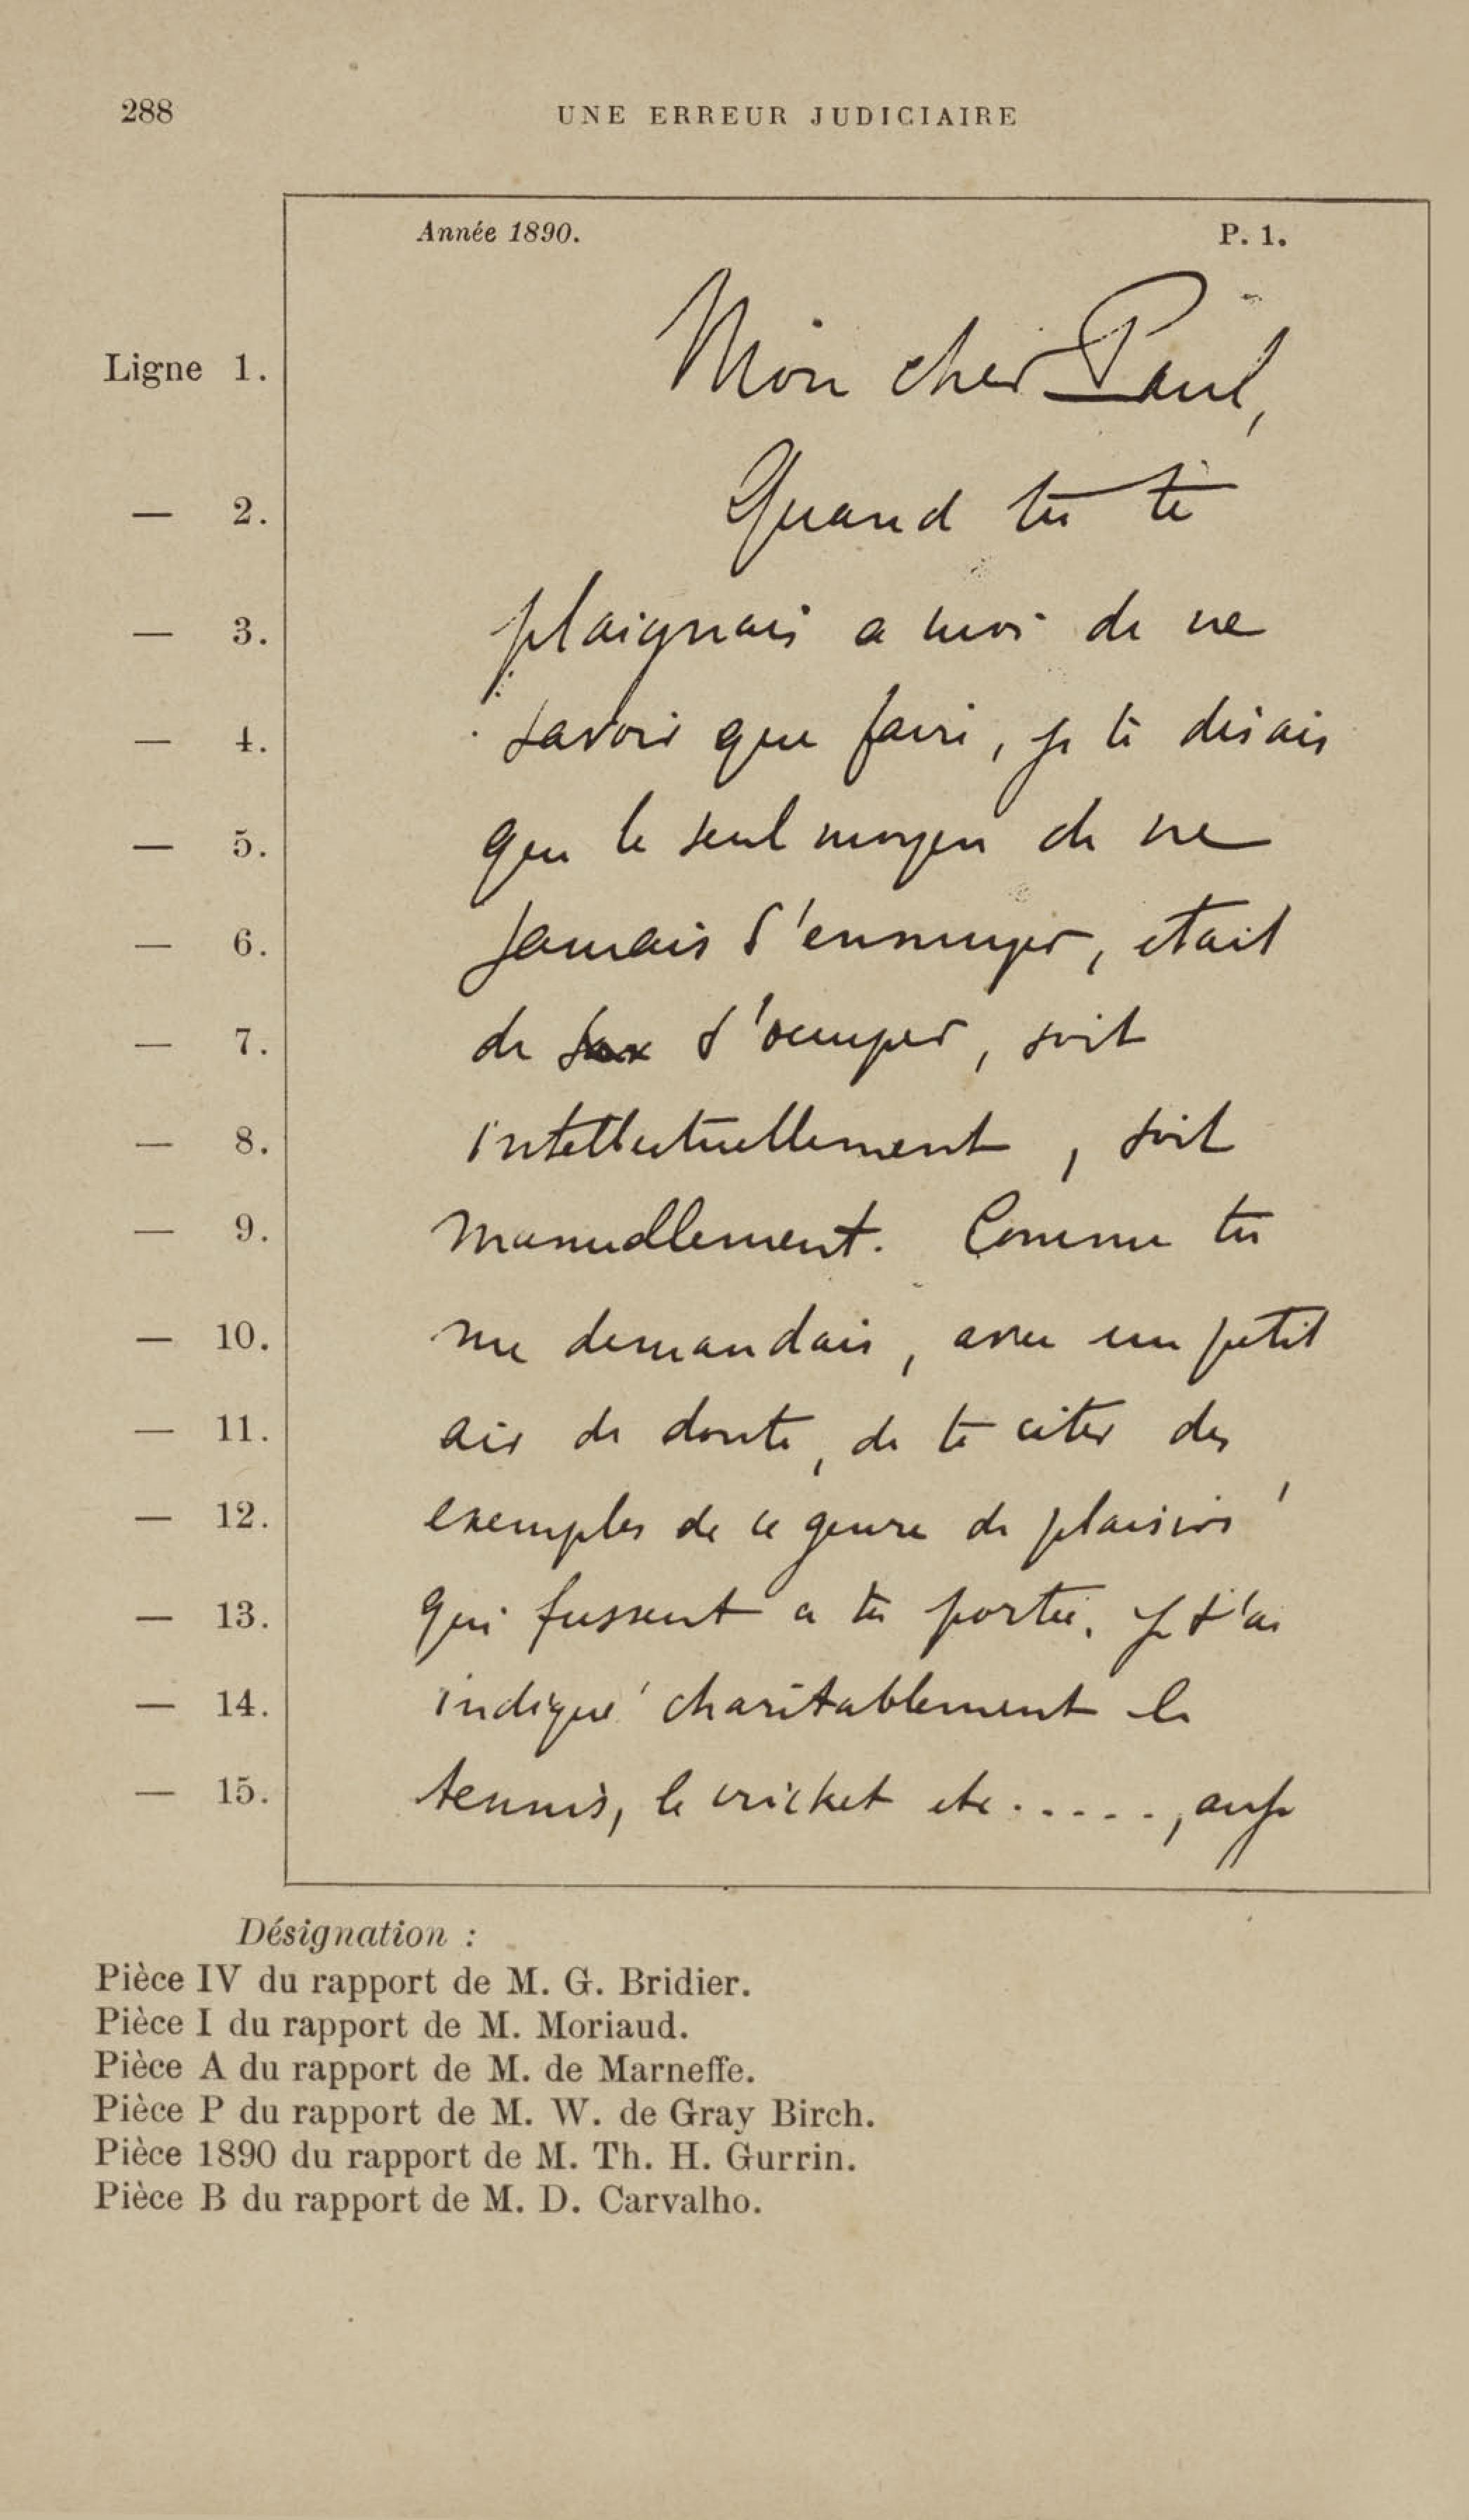 288 UNE ERREUR JUDICIAIRE
Année 1890. P. 1.
Ligne 1. Mon cher Paul,
— 2. Quand tu te
— 3. plaignais a moi de ne
— 4. savoir que faire, je te disais
— 5. que le seul moyen de ne
— 6. jamais s'ennuyer, etait
— 7. de s'occuper, soit
— 8. intellectuellement, soit
— 9. manuellement. Comme tu
— 10. me demandais, avec un petit
— 11. air de doute, de te citer des
— 12. exemples de ce genre de plaisirs
— 13. qui fussent a ta portée. Je t'ai
— 14. indiqué charitablement le
— 15. tennis, le cricket etc.....,
Désignation :
Pièce IV du rapport de M. G. Bridier.
Pièce I du rapport de M. Moriaud.
Pièce A du rapport de M. de Marneffe.
Pièce P du rapport de M. W. de Gray Birch.
Pièce 1890 du rapport de M. Th. H. Gurrin.
Pièce B du rapport de M. D. Carvalho.